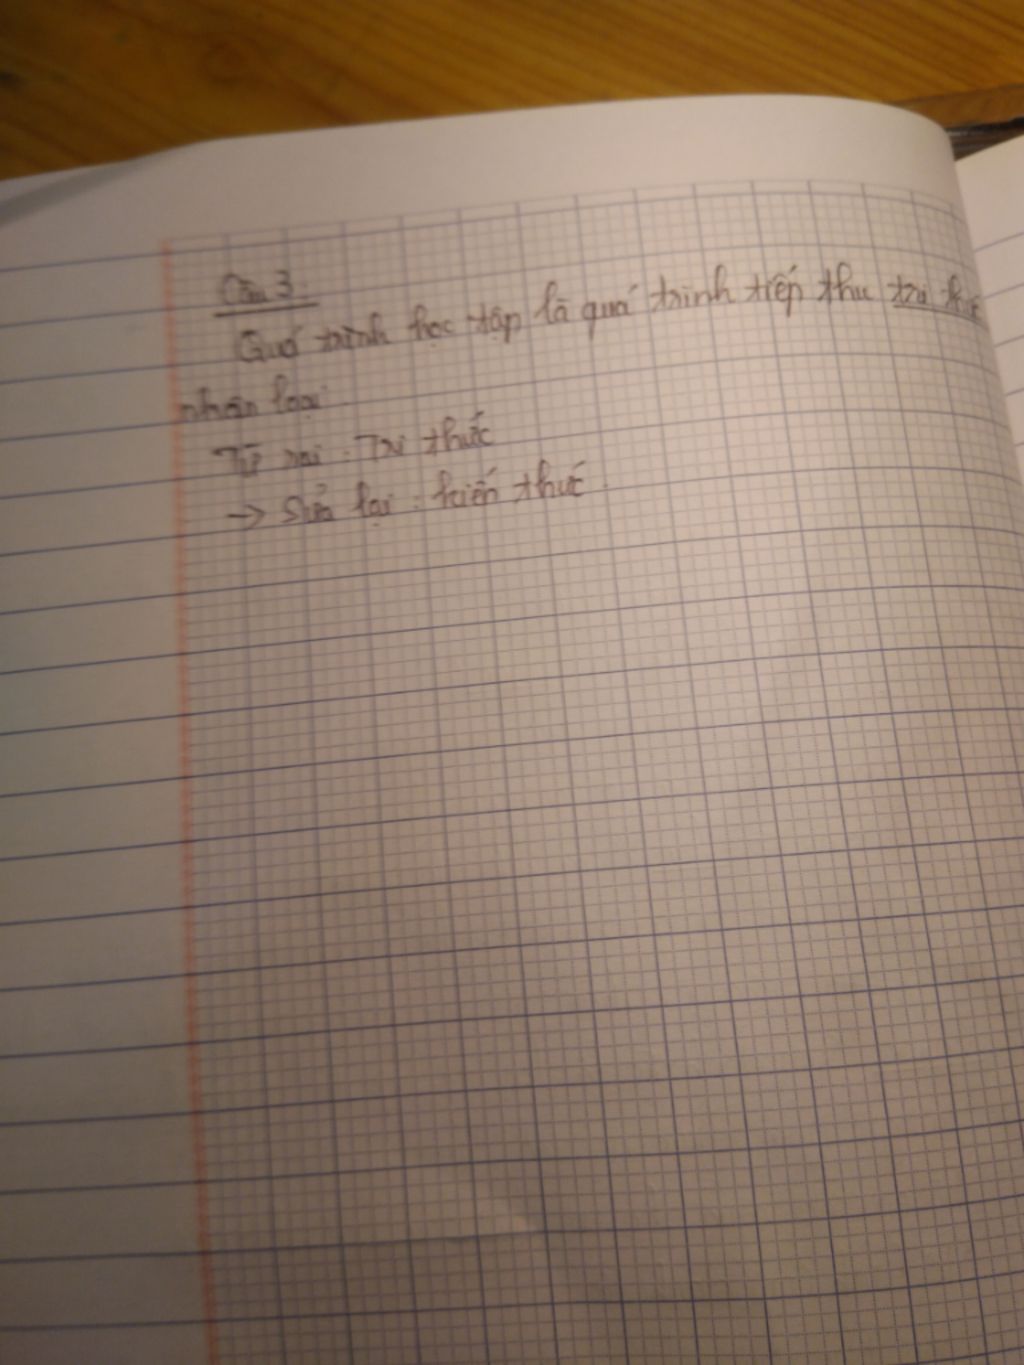 Câu 3.
Quá trình học tập là quá trình tiếp thu tri thức
nhân loại.
Từ sai : Tri thức
→ Sửa lại : kiến thức.